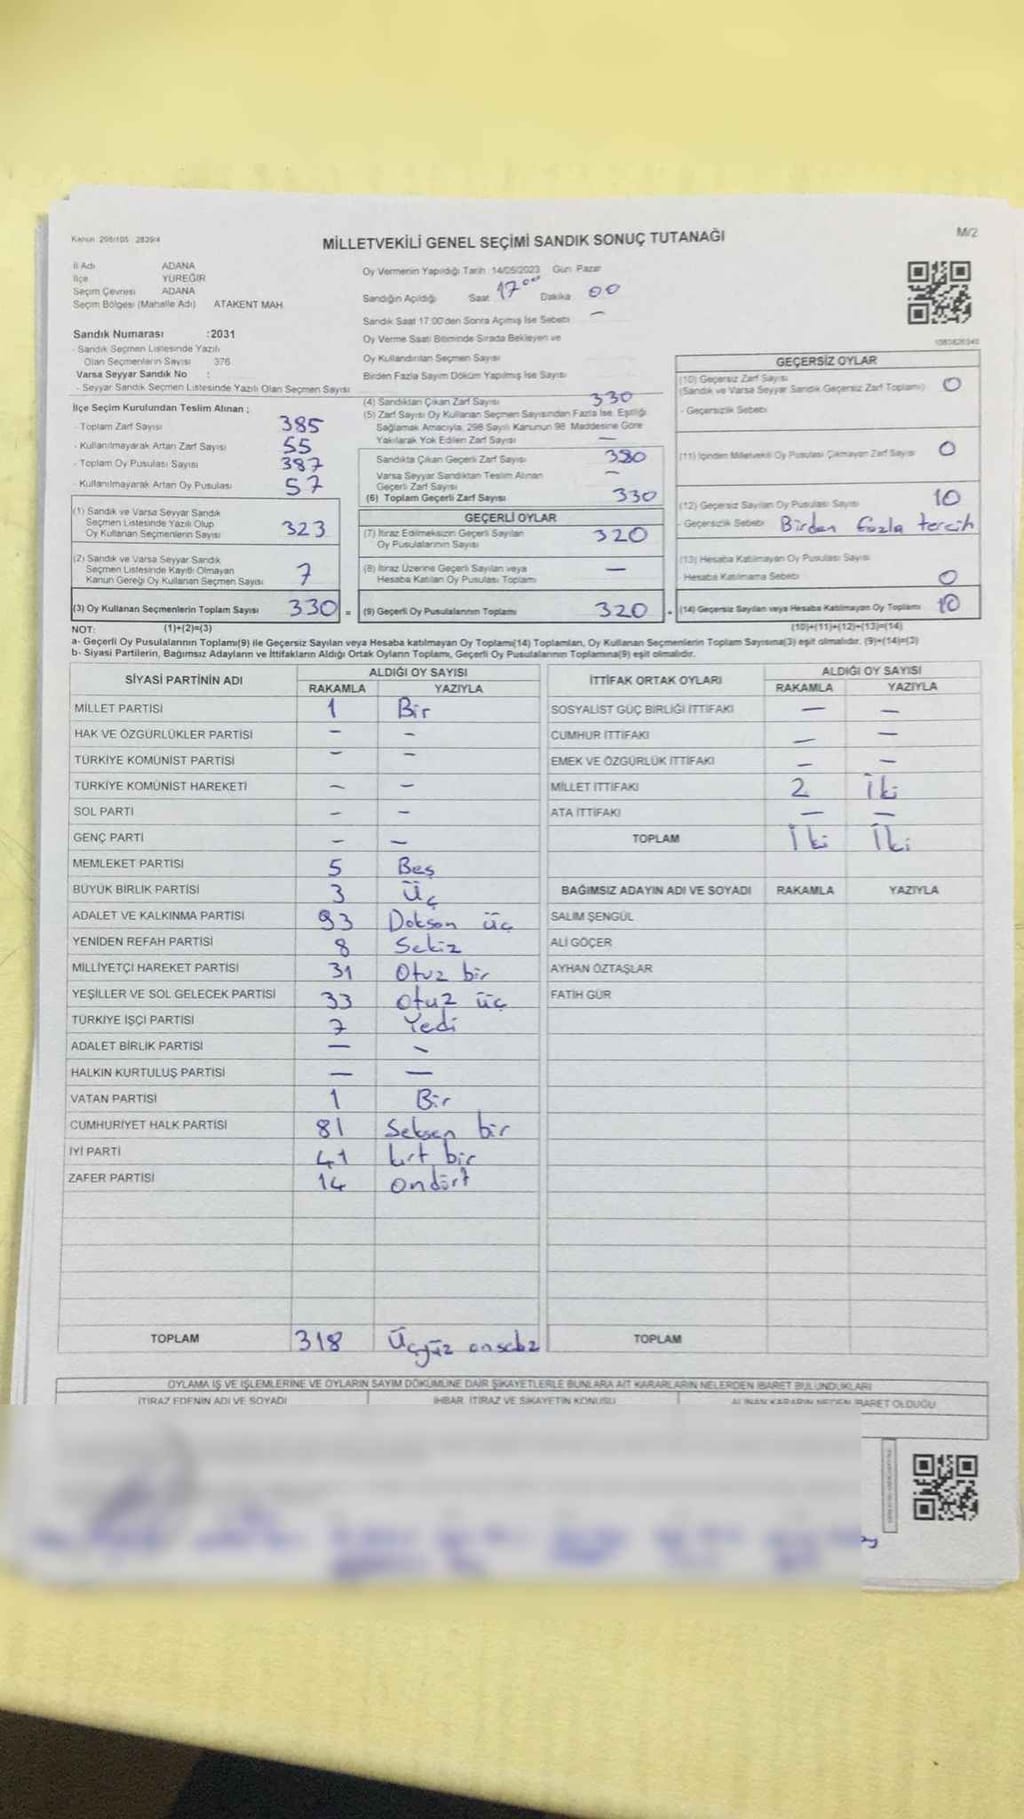 Kanun 298/105 2839/4
MİLLETVEKİLİ GENEL SEÇİMİ SANDIK SONUÇ TUTANAĞI
M/2
İl Adı ADANA
İlçe YÜREĞİR
Seçim Çevresi ADANA
Seçim Bölgesi (Mahalle Adı) ATAKENT MAH
Sandık Numarası :2031
- Sandık Seçmen Listesinde Yazılı
Olan Seçmenlerin Sayısı 376
Varsa Seyyar Sandık No :
- Seyyar Sandık Seçmen Listesinde Yazılı Olan Seçmen Sayısı
İlçe Seçim Kurulundan Teslim Alınan ;
- Toplam Zarf Sayısı 385
- Kullanılmayarak Artan Zarf Sayısı 55
- Toplam Oy Pusulası Sayısı 387
- Kullanılmayarak Artan Oy Pusulası 57
(1) Sandık ve Varsa Seyyar Sandık
Seçmen Listesinde Yazılı Olup
Oy Kullanan Seçmenlerin Sayısı 323
(2) Sandık ve Varsa Seyyar Sandık
Seçmen Listesinde Kayıtlı Olmayan
Kanun Gereği Oy Kullanan Seçmen Sayısı 7
(3) Oy Kullanan Seçmenlerin Toplam Sayısı 330 =
(1)+(2)=(3)
Oy Vermenin Yapıldığı Tarih 14/05/2023 Gün Pazar
Sandığın Açıldığı Saat 17 00 Dakika 00
Sandık Saat 17:00'den Sonra Açılmış İse Sebebi —
Oy Verme Saati Bitiminde Sırada Bekleyen ve
Oy Kullandırılan Seçmen Sayısı
Birden Fazla Sayım Döküm Yapılmış İse Sayısı
(4) Sandıktan Çıkan Zarf Sayısı 330
(5) Zarf Sayısı Oy Kullanan Seçmen Sayısından Fazla İse, Eşitliği
Sağlamak Amacıyla, 298 Sayılı Kanunun 98. Maddesine Göre
Yakılarak Yok Edilen Zarf Sayısı —
Sandıkta Çıkan Geçerli Zarf Sayısı 330
Varsa Seyyar Sandıktan Teslim Alınan
Geçerli Zarf Sayısı —
(6) Toplam Geçerli Zarf Sayısı 330
GEÇERLİ OYLAR
(7) İtiraz Edilmeksizin Geçerli Sayılan
Oy Pusulalarının Sayısı 320
(8) İtiraz Üzerine Geçerli Sayılan veya
Hesaba Katılan Oy Pusulası Toplamı —
(9) Geçerli Oy Pusulalarının Toplamı 320
GEÇERSİZ OYLAR
(10) Geçersiz Zarf Sayısı
(Sandık ve Varsa Seyyar Sandık Geçersiz Zarf Toplamı) 0
- Geçersizlik Sebebi
(11) İçinden Milletvekili Oy Pusulası Çıkmayan Zarf Sayısı 0
(12) Geçersiz Sayılan Oy Pusulası Sayısı 10
- Geçersizlik Sebebi Birden fazla tercih
(13) Hesaba Katılmayan Oy Pusulası Sayısı
Hesaba Katılmama Sebebi 0
(14) Geçersiz Sayılan veya Hesaba Katılmayan Oy Toplamı 10
(10)+(11)+(12)+(13)=(14)
NOT:
a- Geçerli Oy Pusulalarının Toplamı(9) ile Geçersiz Sayılan veya Hesaba katılmayan Oy Toplamı(14) Toplamları, Oy Kullanan Seçmenlerin Toplam Sayısına(3) eşit olmalıdır. (9)+(14)=(3)
b- Siyasi Partilerin, Bağımsız Adayların ve İttifakların Aldığı Ortak Oyların Toplamı, Geçerli Oy Pusulalarının Toplamına(9) eşit olmalıdır.
SİYASİ PARTİNİN ADI ALDIĞI OY SAYISI
RAKAMLA YAZIYLA
MİLLET PARTİSİ 1 Bir
HAK VE ÖZGÜRLÜKLER PARTİSİ - -
TÜRKİYE KOMÜNİST PARTİSİ - -
TÜRKİYE KOMÜNİST HAREKETİ - -
SOL PARTİ - -
GENÇ PARTİ - -
MEMLEKET PARTİSİ 5 Beş
BÜYÜK BİRLİK PARTİSİ 3 Üç
ADALET VE KALKINMA PARTİSİ 93 Doksan üç
YENİDEN REFAH PARTİSİ 8 Sekiz
MİLLİYETÇİ HAREKET PARTİSİ 31 Otuz bir
YEŞİLLER VE SOL GELECEK PARTİSİ 33 Otuz üç
TÜRKİYE İŞÇİ PARTİSİ 7 Yedi
ADALET BİRLİK PARTİSİ - -
HALKIN KURTULUŞ PARTİSİ - -
VATAN PARTİSİ 1 Bir
CUMHURİYET HALK PARTİSİ 81 Seksen bir
İYİ PARTİ 41 kırt bir
ZAFER PARTİSİ 14 ondört
TOPLAM 318 Üçyüz onsekiz
İTTİFAK ORTAK OYLARI ALDIĞI OY SAYISI
RAKAMLA YAZIYLA
SOSYALİST GÜÇ BİRLİĞİ İTTİFAKI — —
CUMHUR İTTİFAKI — —
EMEK VE ÖZGÜRLÜK İTTİFAKI — —
MİLLET İTTİFAKI 2 İki
ATA İTTİFAKI — —
TOPLAM İki İki
BAĞIMSIZ ADAYIN ADI VE SOYADI RAKAMLA YAZIYLA
SALİM ŞENGÜL
ALİ GÖÇER
AYHAN ÖZTAŞLAR
FATİH GÜR
TOPLAM
OYLAMA İŞ VE İŞLEMLERİNE VE OYLARIN SAYIM DÖKÜMÜNE DAİR ŞİKAYETLERLE BUNLARA AİT KARARLARIN NELERDEN İBARET BULUNDUKLARI
İTİRAZ EDENİN ADI VE SOYADI İHBAR, İTİRAZ VE ŞİKAYETİN KONUSU ALINAN KARARIN NEDEN İBARET OLDUĞU